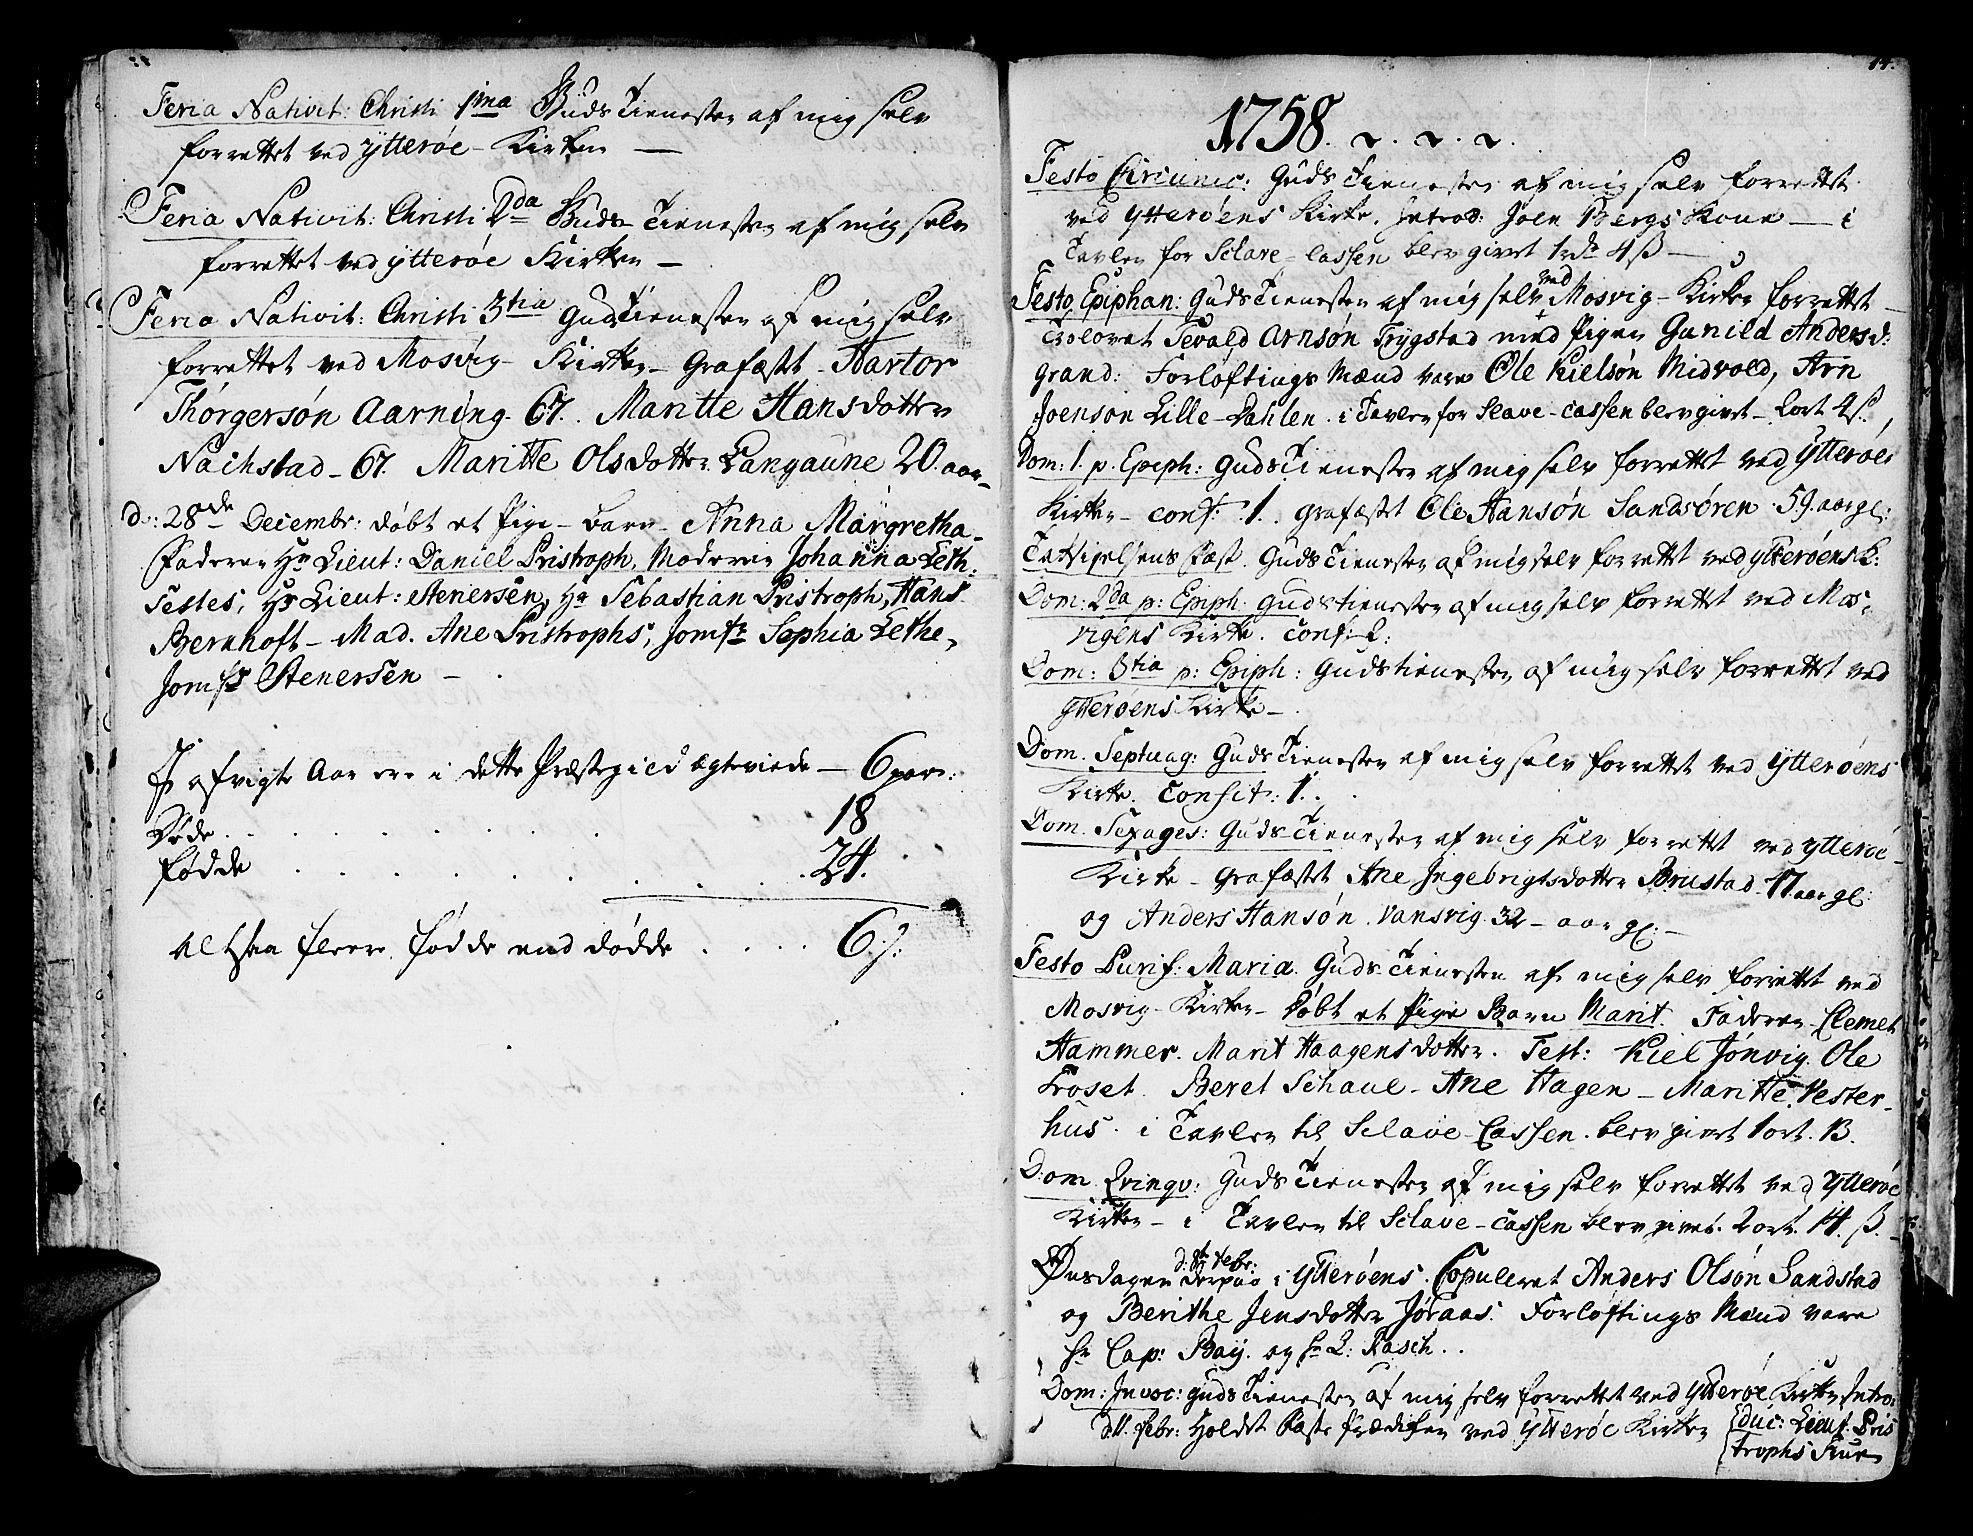 Feria Nativit: Christi 1ma Guds Tienesten af mig selv
forrettet ved Ytterøe - Kirken —
Feria Nativit: Christi 2da Guds Tienesten af mig selv
forrettet ved Ytterøe Kirken —
Feria Nativit: Christi 3tia Guds Tienesten af mig selv
forrettet ved Mosvig - Kirken - Grafæstet - Hartor
Thorgersøn Aarning. 67. Maritte Hansdotter
Nachstad - 67. Maritte Olsdotter Langaune 20. aar -
d: 28de Decembr: døbt et Pige - barn - Anna Margretha -
Faderen Hr Lieut: Daniel Pristroph, Moderen Johanna Leth:
Testes, Hr Lieut: Stenersen, Hr Sebastian Pristroph, Hans
Bernhoft - Mad. Ane Pristrophs, Jomfr Sophia Lethe,
Jomfr Stenersen —
I afvigte Aar ere i dette Præstegield ægteviede — 6 par:
Døde . . . . . . . . 18
fødde . . . . . . . . 24.
Altsaa fleere fødde end dødde . . . . 6 ./.
14.
1758.
Festo Circumc: Guds Tienesten af mig selv forrettet
ved Ytterøens Kirke. Introd: Joen Bergs Kone — i
Tavlen for Sclave - Cassen blev givet 1 rdr 4 ß —
Festo Epiphan: Guds Tienesten af mig selv ved Mosvig - Kirken forrettet —
Troloret Sevald Arnsøn Trygstad med Pigen Gunild Andersd:
Grand: Forløftings Mænd vare Ole Kielsøn Midvold, Arn
Joenson Lille - Dahlen. i Tavlen for Slave - Cassen blev givet - 2 ort 4 ß,
Dom: 1. p. Epiph: Guds Tienesten af mig selv forrettet ved Ytterøe
Kirken - conf: 1. grafæstet Ole Hansøn Sandsøren 59. aar gl:
Tacksigelsens Fæst. Guds Tienesten af mig selv forrettet ved Ytterøens K:
Dom: 2da p: Epiph: Guds tienesten af mig selv forrettet ved Mos-
vigens Kirke. Conf: 2:
Dom: 3tia p: Epiph: Guds tienesten af mig selv forrettet ved
Ytterøens Kirke —
Dom. Septuag: Guds Tienesten af mig selv forrettet ved Ytterøens
Kirke. Confit: 1.
Dom. Sexages: Guds Tienesten af mig selv forrettet ved Ytterøe -
Kirke - grafæstet Ane Ingebrigtsdotter Brustad 17 aar gl:
og Anders Hansøn Vansvig. 32 - aar gl: —
Festo Purif: Mariæ. Guds Tienesten af mig selv forrettet ved
Mosvig - Kirken - Døbt et Pige Barn Marit. Faderen Clemet
Hammer. Marit Haagensdotter. Test: Kiel Jønvig. Ole
Froset. Beret Schaue - Ane Hagen - Maritte Vester-
hus. i Tavlen til Sclave - Cassen. blev givet 1 ort. 13.
Dom. Qvinqv: Guds Tienesten af mig selv forrettet ved Ytterøe
Kirken - i Tavlen til Sclave - Cassen blev givet. 2 ort. 14. ß. -
d: 8t Febr:
Onsdagen derpaa i Ytterøens. Copuleret Anders Olsøn Sandstad
og Berithe Jensdotter Jøraas. Forløftings Mænd vare
Hr Cap: Bay. og Hr L: Rasch. .
Dom: Invoc: Guds Tienesten af mig selv forrettet ved Ytterøe Kirke, Intro
d: 11. Febr: Holdet Faste Prædiken ved Ytterøe Kirken { duc: Lieut. Pris
trophs Frue